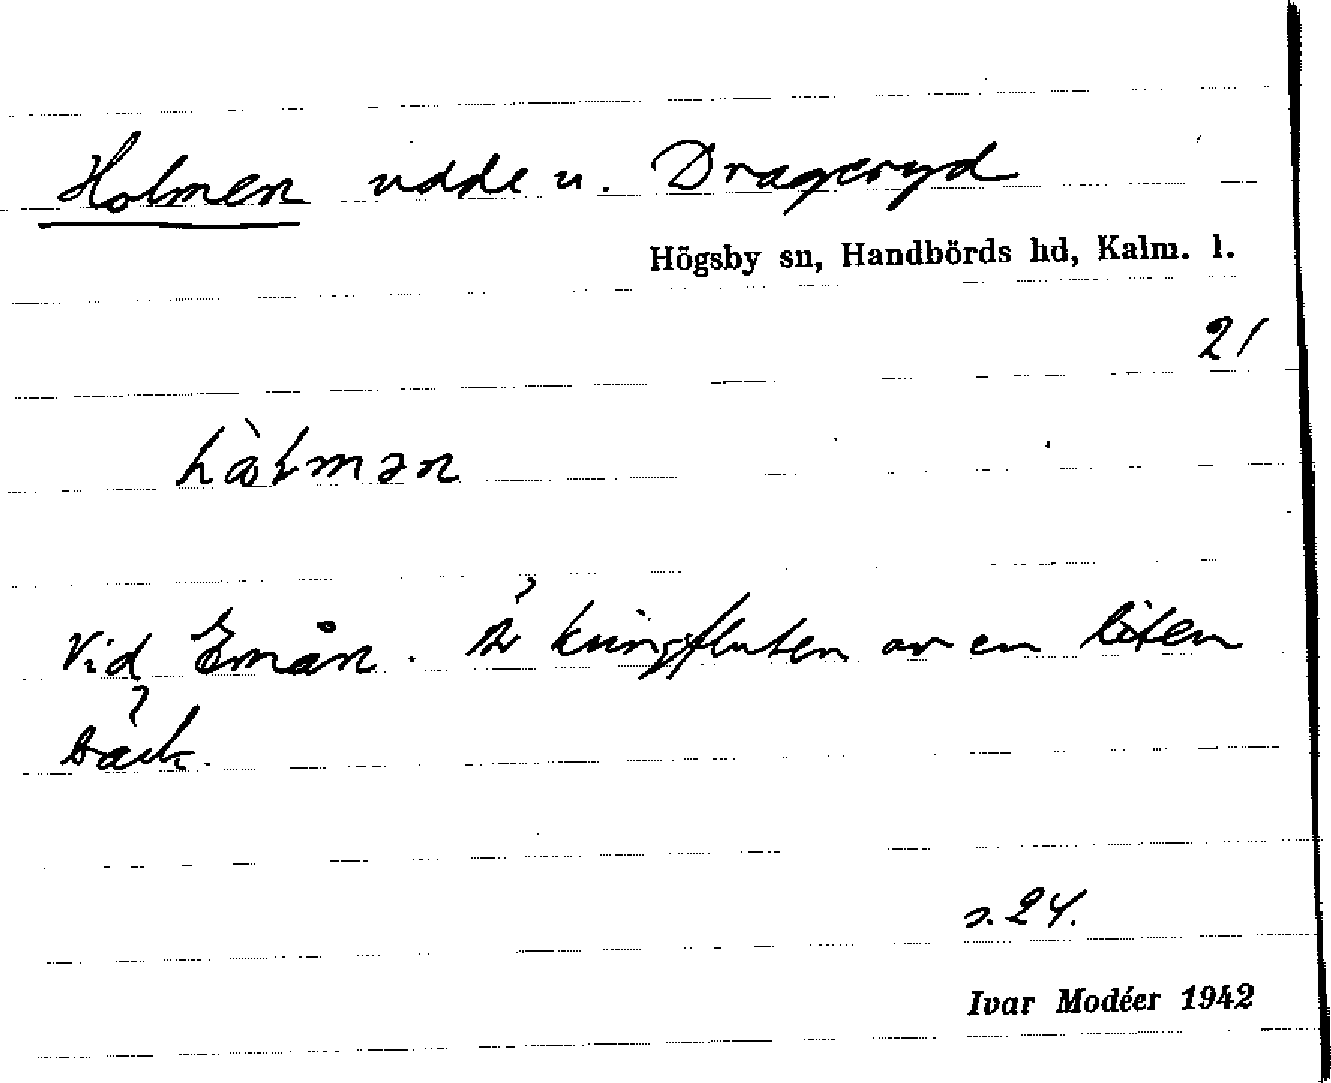 Holmen udde u. Drageryd
Högsby sn, Handbörds hd, Kalm. l.
21
Vid Emån. Är kringfluten av en liten
bäck.
s. 24.
Ivar Modéer 1942